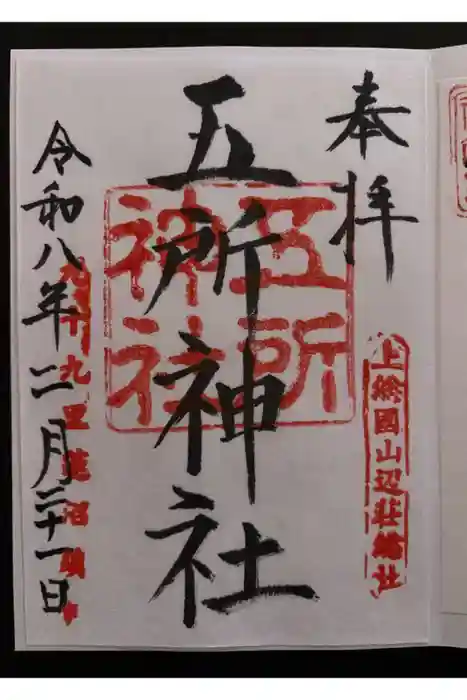 奉拝
上総國山辺荘総社
五所神社
五所
神社
令和八年二月二十一日
九十九里蓮沼鎮守